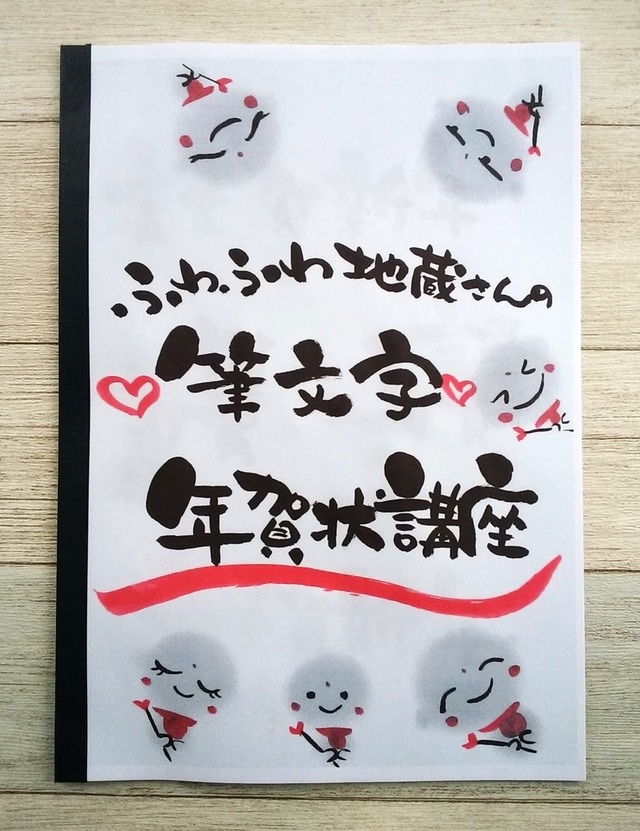 ふわふわ地蔵さんの
筆文字
年賀状講座